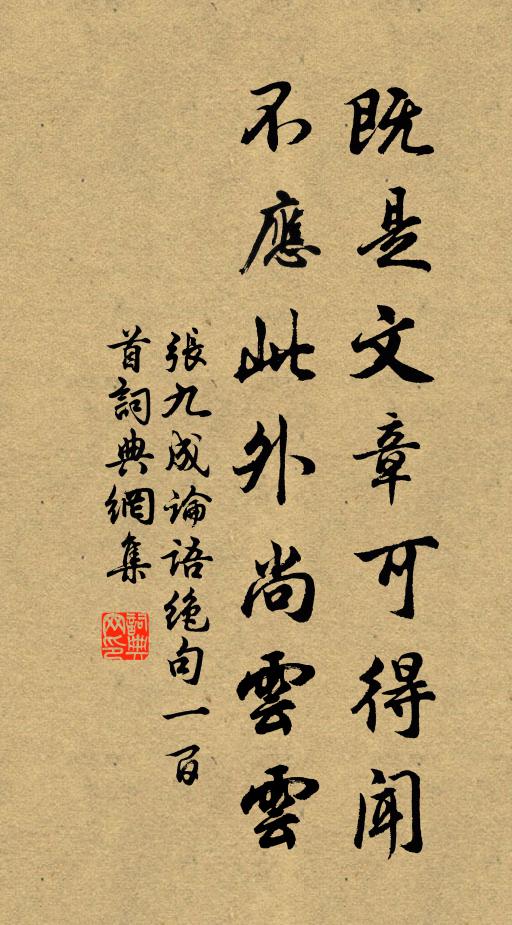 既是文章可得闻
不應此外尚雲雲
張九成論語绝句一百
首詞典網集
詞典網印